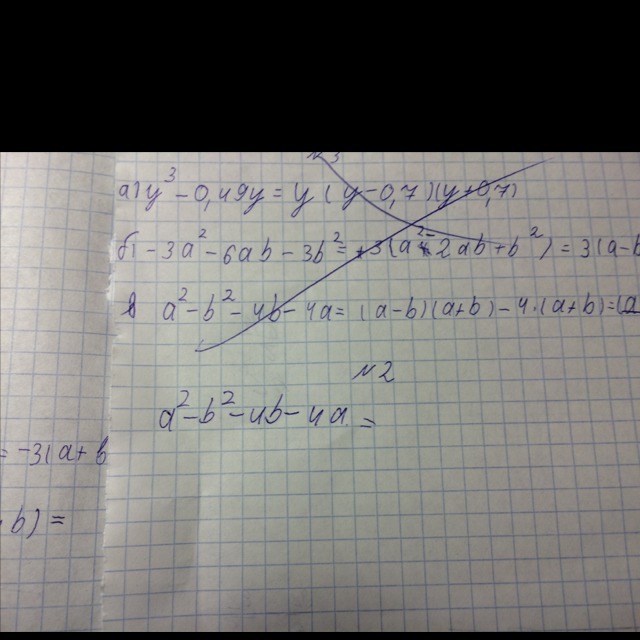 №3
а) y³ - 0,49y = y(y-0,7)(y+0,7)
б) -3a² - 6ab - 3b² = -3(a² - 2ab + b²) = 3(a-b
в a² - b² - 4b - 4a = (a-b)(a+b) - 4·(a+b) = (a
№2
a² - b² - 4b - 4a =
= -3(a+b
b) =